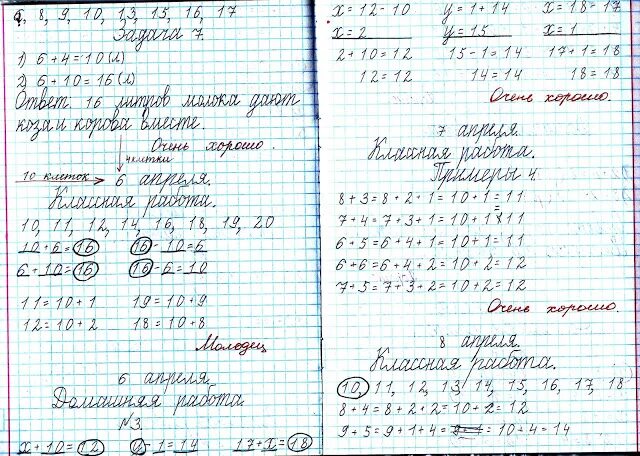 6, 8, 9, 10, 13, 15, 16, 17
Задача 7.
1) 6 + 4 = 10 (л)
2) 6 + 10 = 16 (л)
Ответ: 16 литров молока дают
коза и корова вместе.
Очень хорошо.
4 клетки
10 клеток
6 апреля.
Классная работа.
10, 11, 12, 14, 16, 18, 19, 20
10 + 6 = 16 16 - 10 = 6
6 + 10 = 16 16 - 6 = 10
11 = 10 + 1 19 = 10 + 9
12 = 10 + 2 18 = 10 + 8
Молодец
6 апреля.
Домашняя работа.
№3.
х + 10 = 12 у - 1 = 14 17 + х = 18
х = 12 - 10 у = 1 + 14 х = 18 - 17
х = 2 у = 15 х = 1
2 + 10 = 12 15 - 1 = 14 17 + 1 = 18
12 = 12 14 = 14 18 = 18
Очень хорошо.
7 апреля.
Классная работа.
Примеры 4.
8 + 3 = 8 + 2 + 1 = 10 + 1 = 11
7 + 4 = 7 + 3 + 1 = 10 + 1 = 11
6 + 5 = 6 + 4 + 1 = 10 + 1 = 11
6 + 6 = 6 + 4 + 2 = 10 + 2 = 12
7 + 5 = 7 + 3 + 2 = 10 + 2 = 12
Очень хорошо.
8 апреля.
Классная работа.
10, 11, 12, 13, 14, 15, 16, 17, 18
8 + 4 = 8 + 2 + 2 = 10 + 2 = 12
9 + 5 = 9 + 1 + 4 = 10 + 4 = 14